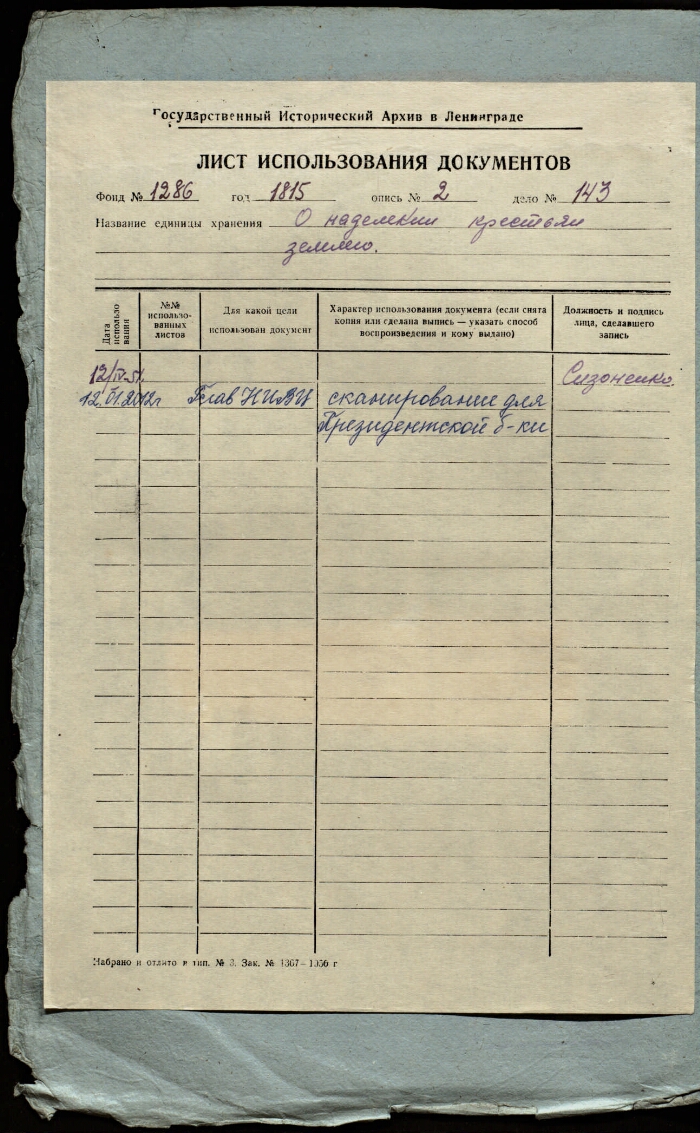 Государственный Исторический Архив в Ленинграде
ЛИСТ ИСПОЛЬЗОВАНИЯ ДОКУМЕНТОВ
Фонд № 1286 год 1815 опись № 2 дело № 143
Название единицы хранения О наделении крестьян
землею.
Дата использования
№№ использо-ванных листов
Для какой цели использован документ
Характер использования документа (если снята
копия или сделана выпись — указать способ
воспроизведения и кому выдано)
Должность и подпись
лица, сделавшего
запись
12/IV.51. Сизоненко.
12.VI.2012г Глав НИВЦ сканирование для
Президентской б-ки
Набрано и отлито в тип. № 3. Зак. № 1367—1956 г